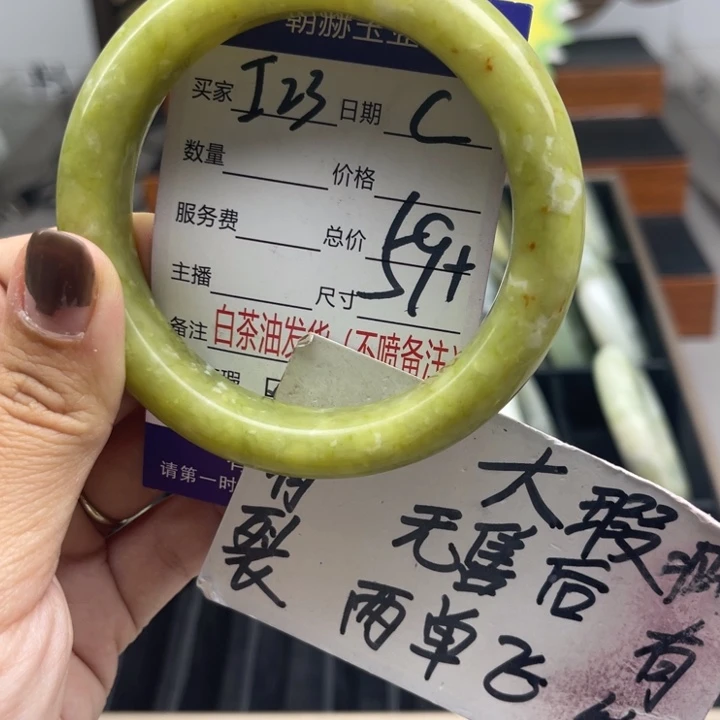 朝赫玉业
买家 I23 日期 C
数量 价格
服务费 总价
主播 尺寸 59+
备注 白茶油发货(不喷备注)
瑕
请第一时
有 大瑕
裂 无售后 有
两单飞